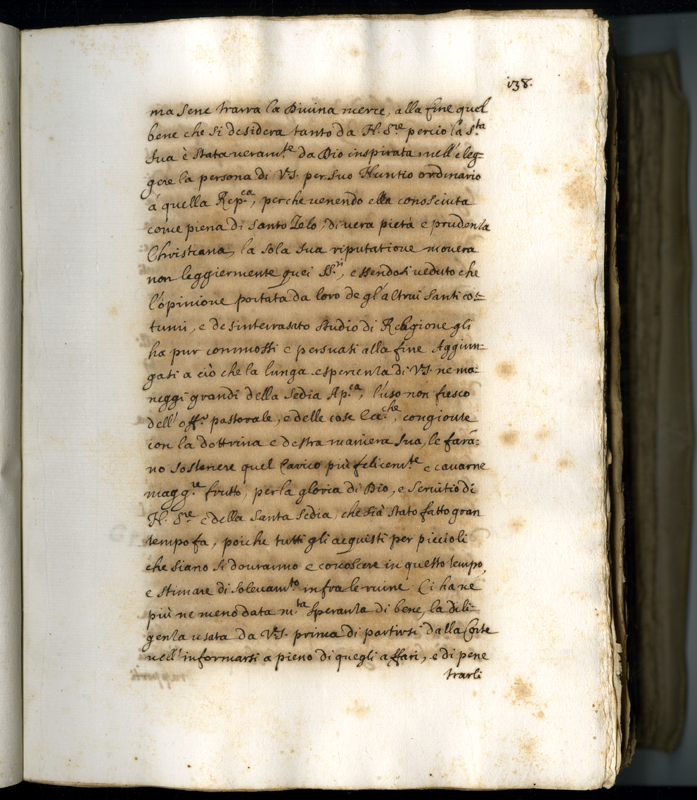 138.
ma sene trarrà la Divina mercè, alla fine quel
bene che si desidera tanto da N. Sre perciò la Sta
sua è stata veramte da Dio inspirata nell'eleg-
gere la persona di V.S. per suo Nuntio ordinario
à quella Repca, perche venendo ella conosciuta
come piena di santo Zelo, di vera pietà e prudenza
Christiana, la sola sua riputatione moverà
non leggiermente quei SSri, essendosi veduto che
l'opinione portata da loro de gl'altrui santi cos-
tumi, e desinteressato studio di Religione gli
ha pur commossi e persuasi alla fine Aggiun-
gasi a ciò che la lunga esperienza di V.S. ne ma-
neggi grandi della Sedia Apca, l'uso non fresco
dell'offo pastorale, e delle cose Ecche, congionte
con la dottrina e destra maniera sua, le farà-
no sostenere quel Carico più felicemte e cavarne
maggre frutto, per la gloria di Dio, e servitio di
N. Sre e della Santa Sedia, che sia stato fatto gran
tempo fa, poiche tutti gli acquisti per piccioli
che siano si dovranno e conoscere in questo tempo,
e stimare di sollevamto infra le ruine Ci ha ne
più ne meno data mta speranza di bene, la dili-
genza usata da V.S. prima di partirsi dalla Corte
nell'informarsi a pieno di quegli affari, e di pene
trarli